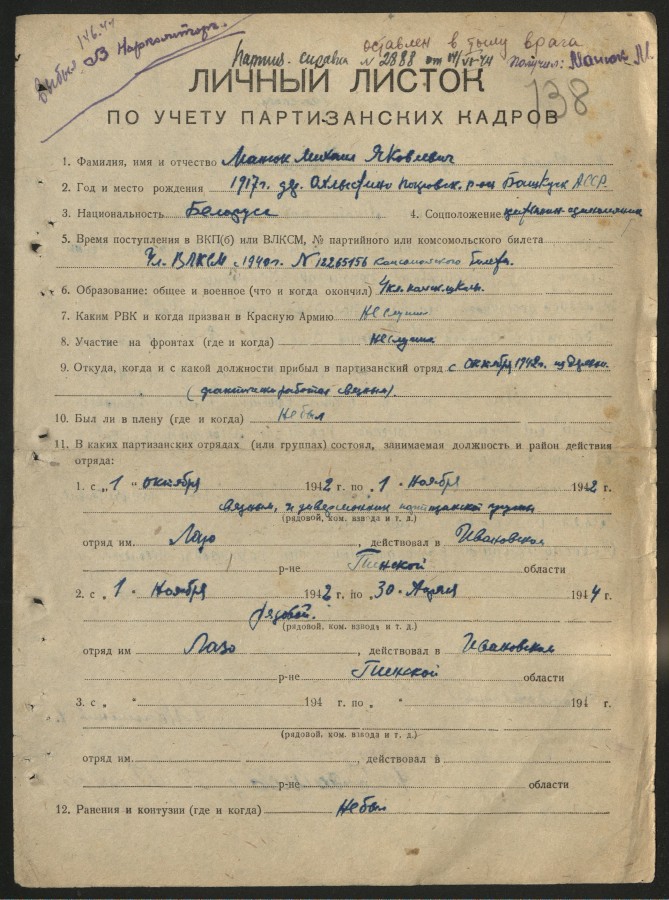 Выбыл 14.6.44 в Наркомторг.
оставлен в тылу врага
Партиз. справка N 2888 от 14/VI-44 получил: Манюк М.
138
ЛИЧНЫЙ ЛИСТОК
ПО УЧЕТУ ПАРТИЗАНСКИХ КАДРОВ
1. Фамилия, имя и отчество Манюк Михаил Яковлевич
2. Год и место рождения 1917г. дер. Покровск. р-он Башкирск АССР
3. Национальность Белорус 4. Соцположение
5. Время поступления в ВКП(б) или ВЛКСМ, № партийного или комсомольского билета
Чл. ВЛКСМ с 1940г. N 12265156 комсомольского билета.
6. Образование: общее и военное (что и когда окончил) 4 кл.
7. Каким РВК и когда призван в Красную Армию Не служил
8. Участие на фронтах (где и когда) Не служил
9. Откуда, когда и с какой должности прибыл в партизанский отряд с октября 1942г. из
(фактически работал связным).
10. Был ли в плену (где и когда) Не был
11. В каких партизанских отрядах (или группах) состоял, занимаемая должность и район действия
отряда:
1. с „1" октября 1942 г. по „1" Ноября 1942 г.
связным, партизанской группы
(рядовой, ком. взвода и т. д.)
отряд им. Лазо, действовал в Ивановском
р-не Пинской области
2. с „1" Ноября 1942 г. по „30" Апреля 1944 г.
рядовой.
(рядовой, ком. взвода и т. д.)
отряд им Лазо, действовал в Ивановском
р-не Пинской области
3. с „ " 194 г. по „ " 194 г.
(рядовой, ком. взвода и т. д.)
отряд им. , действовал в
р-не области
12. Ранения и контузии (где и когда) Не был